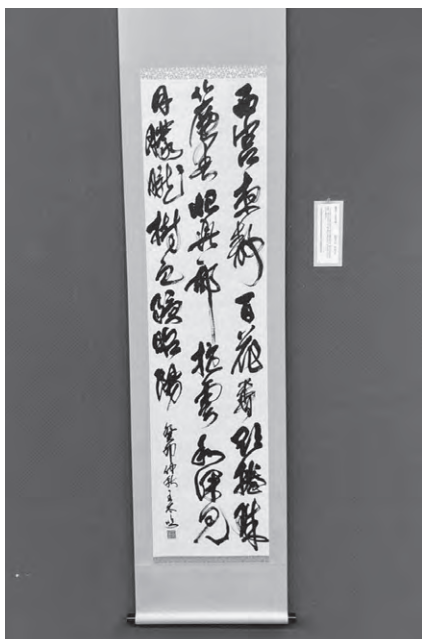 西宮夜靜百花香欲捲珠
簾春恨長斜抱雲和深見
月朦朧樹色隱昭陽
癸卯仲秋